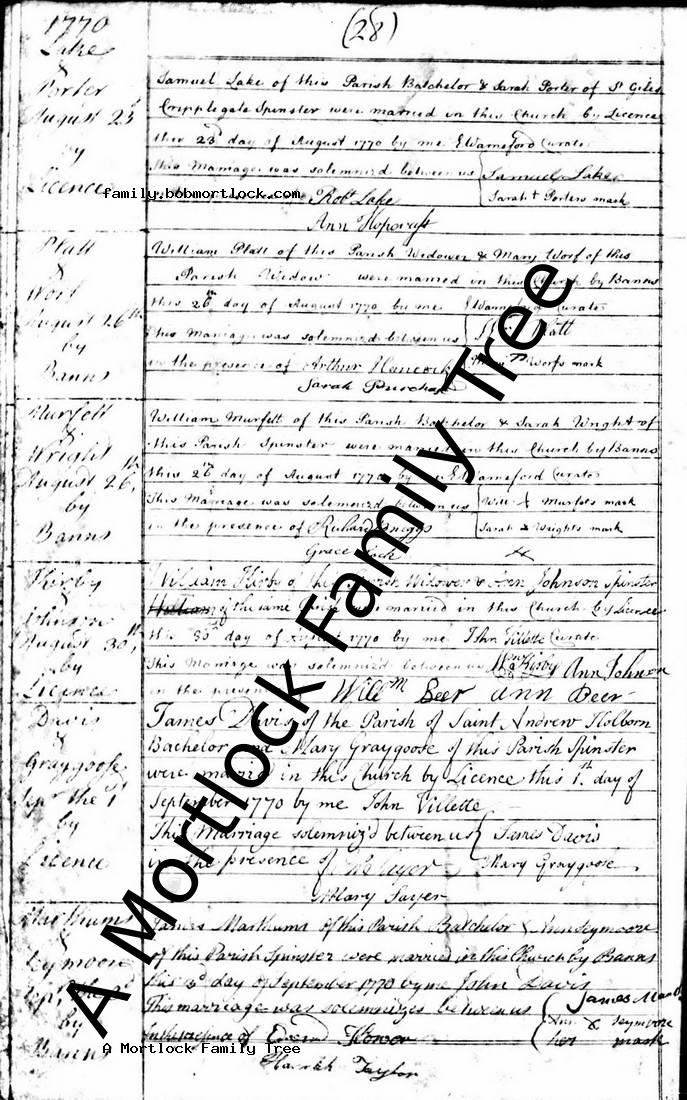 1770
(28)
Lake
&
Porter
August 23d
by
Licence
Samuel Lake of this Parish Batchelor & Sarah Porter of St Giles
Cripplegate Spinster were married in this Church by Licence
this 23d day of August 1770 by me E Warneford Curate
this Marriage was solemnized between us Samuel Lake
Sarah + Porters mark
Robt Lake
Ann Hopcraft
family.bobmortlock.com
Platt
&
Worf
August 26th
by
Banns
William Platt of this Parish Widower & Mary Worf of this
Parish Widow were married in this Church by Banns
this 26th day of August 1770 by me Curate
this Marriage was solemnized between us Platt
in the presence of Arthur Hancock Worfs mark
Sarah Purchas
Murfett
&
Wright
August 26th
by
Banns
William Murfett of this Parish Batchelor & Sarah Wright of
this Parish Spinster were married in this Church by Banns
this 26th day of August 1770 by E Warneford Curate
This Marriage was solemnized between us Will X Murfets mark
in the presence of Richard Sarah Wrights mark
Grace
Kirby
&
Johnson
August 30th
by
Licence
William Kirby of this Parish Widower & Ann Johnson Spinster
of the same were married in this Church by Licence
the 30th day of August 1770 by me John Villette Curate
This Marriage was solemniz'd between us Wm Kirby Ann Johnson
in the presence Willm Beer ann Beer
Davis
&
Graygoose
Sepr the 1st
by
Licence
James Davis of the Parish of Saint Andrew Holborn
Bachelor and Mary Graygoose of this Parish Spinster
were married in this Church by Licence this 1st day of
September 1770 by me John Villette
This Marriage solemniz'd between us James Davis
in the presence of Mary Graygoose
Mary Sayer
&
Seymoore
by
Banns
James Marthums of this Parish Batchelor & Ann Seymoore
of this Parish Spinster were married in this Church by Banns
this 3d day of September 1770 by me John Davis
This marriage was solemnizes between us James
Ann X Seymoore
in the presence of her mark
Hannah Taylor
A Mortlock Family Tree
A Mortlock Family Tree